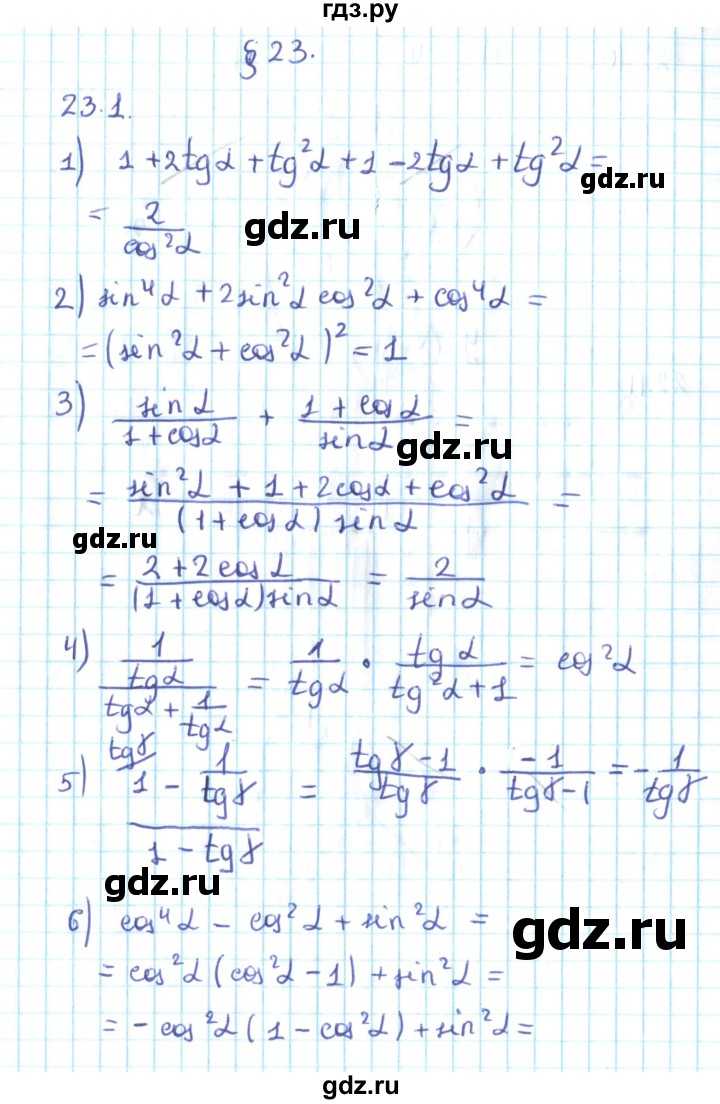 гдз.ру
§ 23.
23.1.
1) 1 + 2tgα + tg²α + 1 - 2tgα + tg²α =
= 2/cos²α
gdz.ru
2) sin⁴α + 2sin²α cos²α + cos⁴α =
= (sin²α + cos²α)² = 1
3) sinα/(1 + cosα) + (1 + cosα)/sinα =
gdz.ru
= (sin²α + 1 + 2cosα + cos²α)/((1 + cosα) sinα) =
gdz.ru
= (2 + 2cosα)/((1 + cosα) sinα) = 2/sinα
4) (1/tgα)/(tgα + 1/tgα) = 1/tgα · tgα/(tg²α + 1) = cos²α
tgγ
5) (1 - 1/tgγ)/(1 - tgγ) = (tgγ - 1)/tgγ · -1/(tgγ - 1) = -1/tgγ
gdz.ru
6) cos⁴α - cos²α + sin²α =
gdz.ru
= cos²α (cos²α - 1) + sin²α =
= - cos²α (1 - cos²α) + sin²α =
gdz.ru